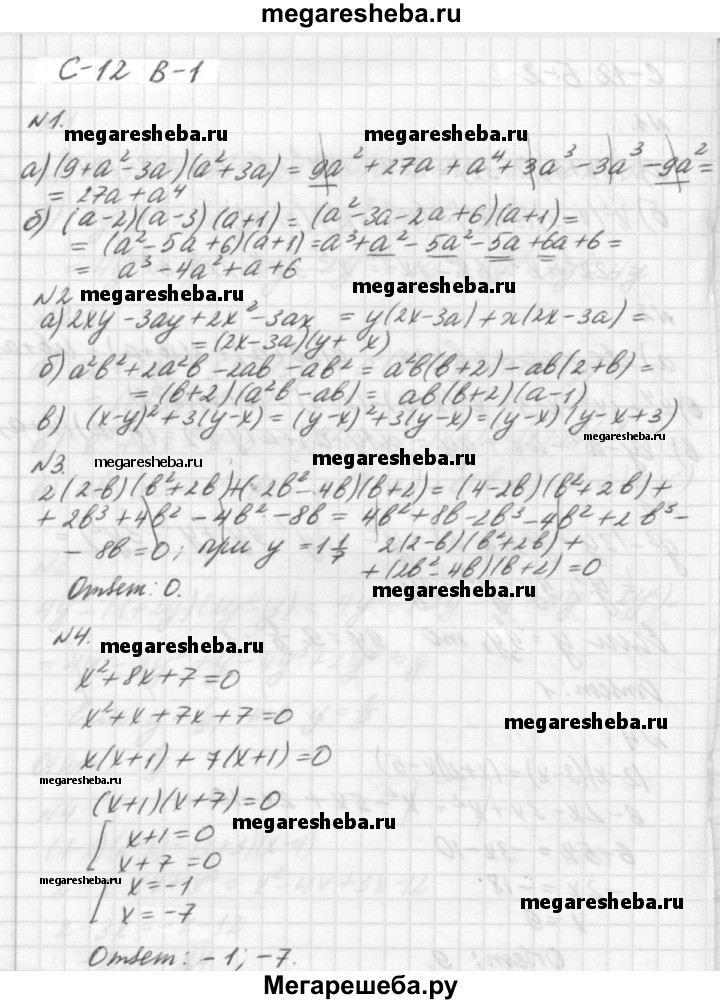 megaresheba.ru
С-12 В-1
№1.
megaresheba.ru megaresheba.ru
а) (9+a²-3a)(a²+3a) = 9a²+27a+a⁴+3a³-3a³-9a² =
= 27a+a⁴
б) (a-2)(a-3)(a+1) = (a²-3a-2a+6)(a+1) =
= (a²-5a+6)(a+1) = a³+a²-5a²-5a+6a+6 =
= a³-4a²+a+6
№2 megaresheba.ru megaresheba.ru
а) 2xy-3ay+2x²-3ax = y(2x-3a)+x(2x-3a) =
= (2x-3a)(y+x)
б) a²b²+2a²b-2ab-ab² = a²b(b+2)-ab(2+b) =
= (b+2)(a²b-ab) = ab(b+2)(a-1)
в) (x-y)²+3(y-x) = (y-x)²+3(y-x) = (y-x)(y-x+3)
megaresheba.ru
№3. megaresheba.ru megaresheba.ru
2(2-b)(b²+2b)+(2b²-4b)(b+2) = (4-2b)(b²+2b)+
+2b³+4b²-4b²-8b = 4b²+8b-2b³-4b²+2b³-
-8b=0; при y=1 1/7 2(2-b)(b²+2b)+
+(2b²-4b)(b+2)=0
Ответ: 0.
№4. megaresheba.ru
x²+8x+7=0
x²+x+7x+7=0
megaresheba.ru
x(x+1)+7(x+1)=0
megaresheba.ru
(x+1)(x+7)=0
megaresheba.ru
x+1=0
x+7=0
megaresheba.ru
x=-1
x=-7
megaresheba.ru
Ответ: -1; -7.
Мегарешеба.ру